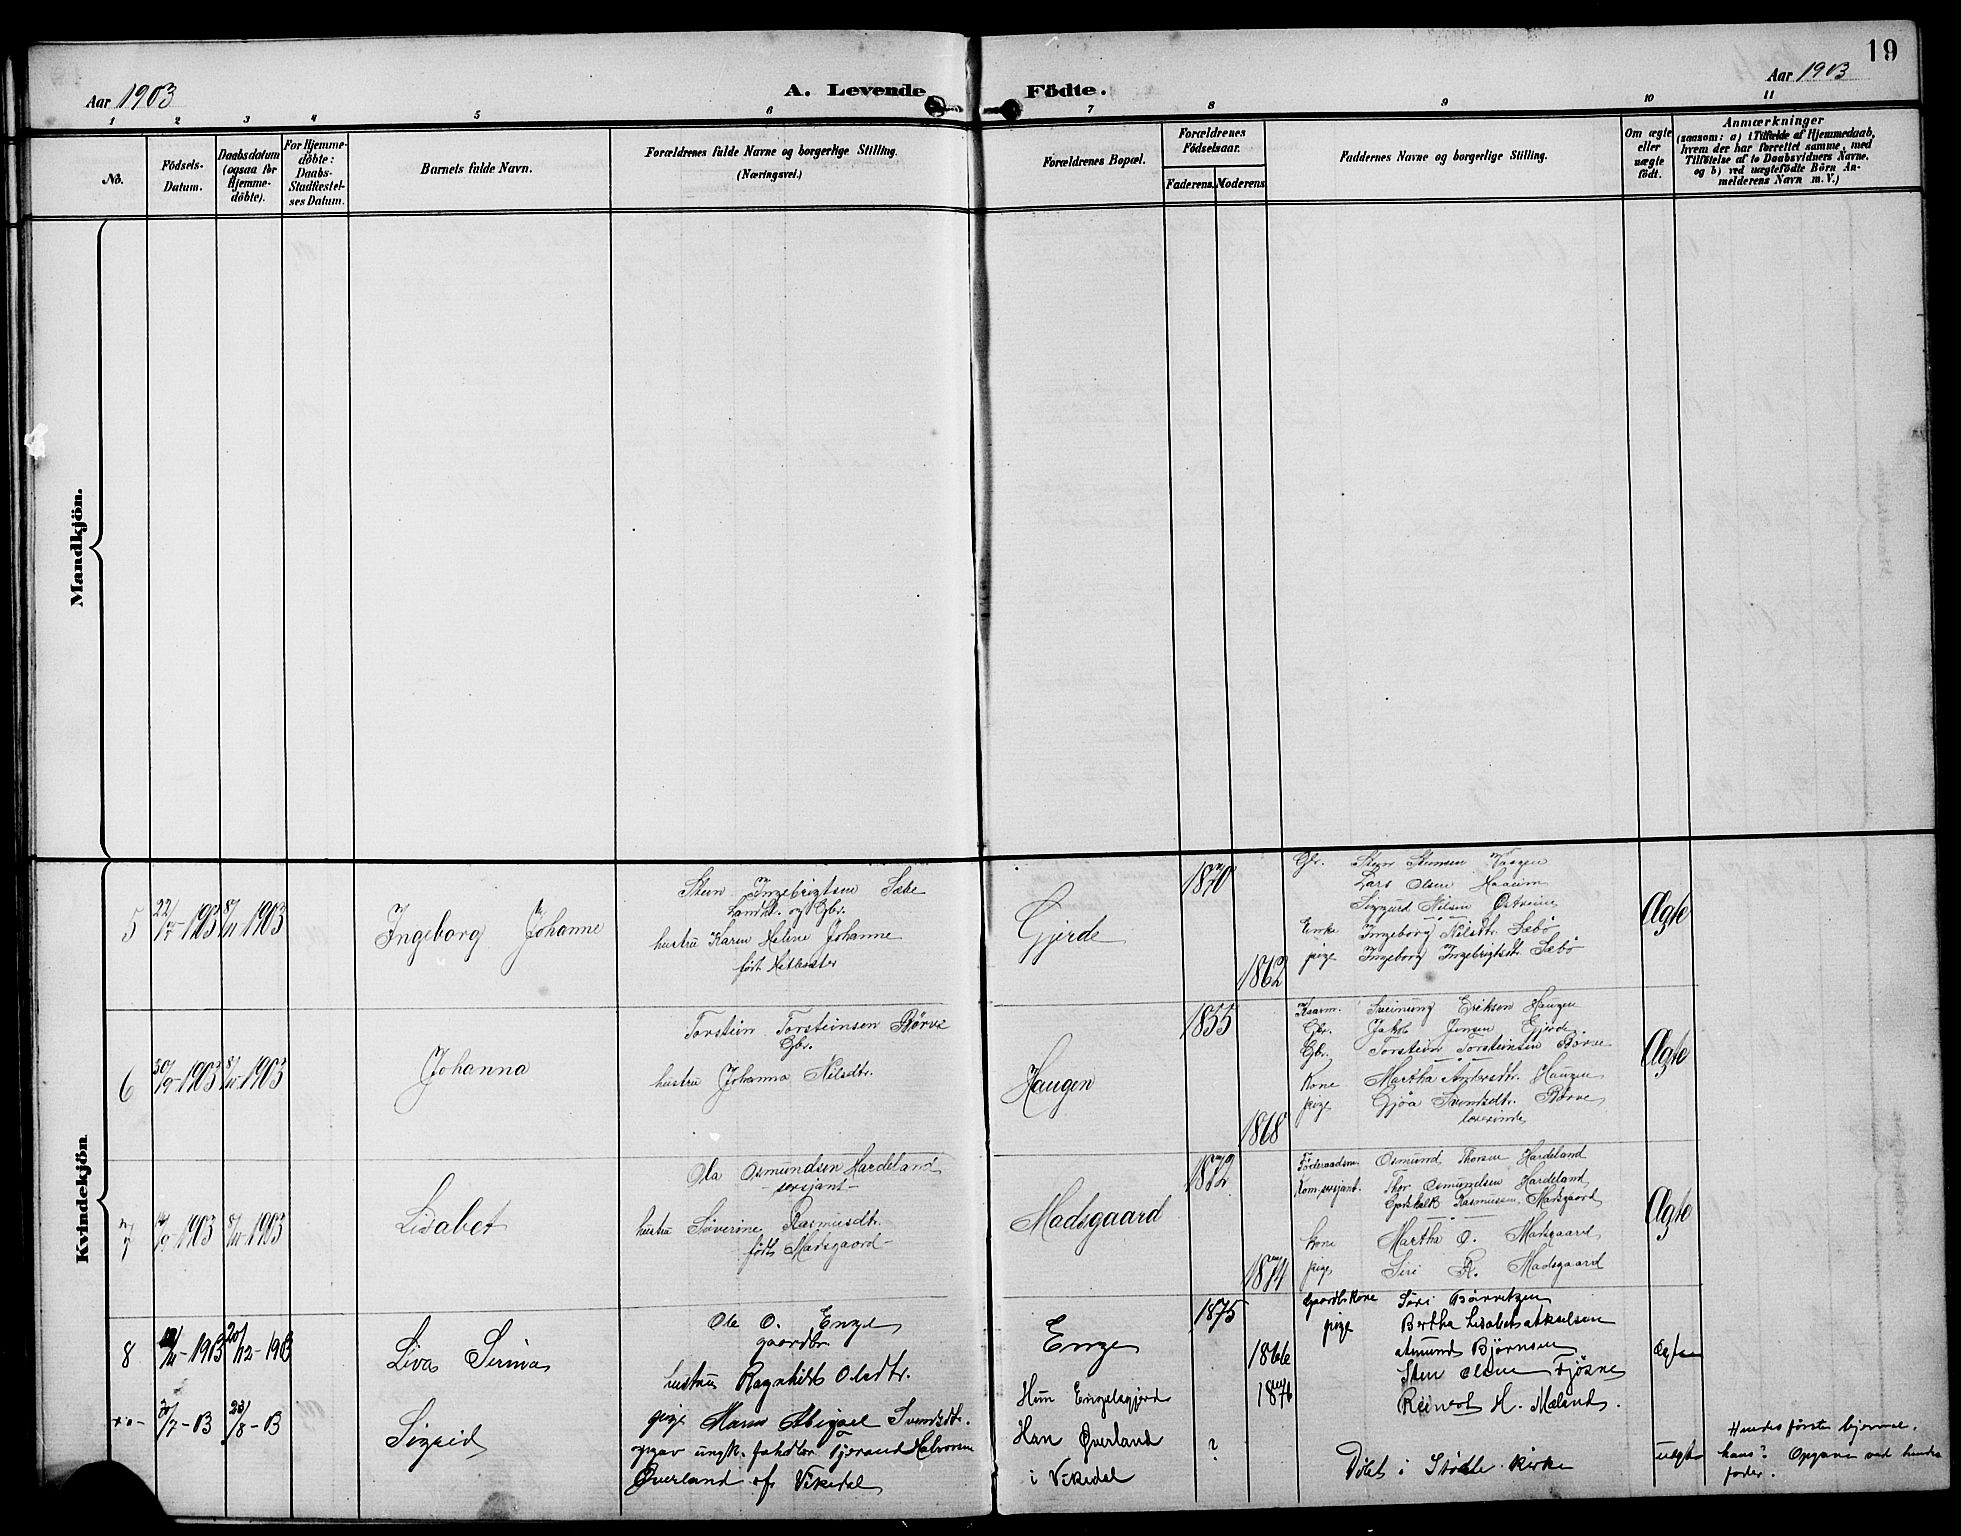 19
Aar 1903
A. Levende Födte.
Aar 1903
1 2 3 4 5 6 7 8 9 10 11
No.
Födsels-Datum.
Daabsdatum (ogsaa for Hjemme-döbte).
For Hjemme-döbte: Daabs-Stadfæstel-ses Datum.
Barnets fulde Navn.
Forældrenes fulde Navne og borgerlige Stilling.
(Næringsvei.)
Forældrenes Bopæl.
Forældrenes Födselsaar.
Faderens. Moderens.
Faddernes Navne og borgerlige Stilling.
Om ægte eller uægte födt.
Anmærkninger
(saasom: a) i Tilfælde af Hjemmedaab,
hvem der har forrettet samme, med
Tilföielse af to Daabsvidners Navne.
og b) ved uægtefödte Börn An-
melderens Navn m. V.)
Mandkjön.
Kvindekjön.
5
1903
1903
Ingeborg Johanne
Steen Ingebrigtsen Sæbø
Landh. og Gbr.
hustru Karen Helene Johanne
født
Gjerde
1870
1862
Gbr. Steen Steensen Vaagen
Lars Olsen Haaeim
Siggurd Nilsen Østreim
Enke Ingeborg Nilsdtr. Sæbö
pige Ingeborg Ingebrigtsdtr. Sæbö
Ægte
6
30/9-1903
1903
Johanna
Torstein Torsteinsen Börve
Gbr.
hustru Johanna Nilsdtr.
Haugen
1855
1868
Kaarm. Sveinung Eriksen Haugen
Gbr. Jakob Jensen Gjerde
Gbr. Torstein Torsteinsen Börve
Kone Martha Andersdtr. Haugen
pige Gjøa Svendsdtr. Börve
lærerinde
Ægte
7
1903
1903
Lisabet
Ola Osmundsen Hardeland
- sersjant -
hustru Söverine Rasmusdtr.
født Madsgaard -
Madsgaard
1872
1874
Föderaadsm. Osmund Thorsen Hardeland
Kom.sersjant. Thor Osmundsen Hardeland
Godskalk Rasmussen Madsgaard
kone Martha O. Madsgaard
pige Siri R. Madsgaard
Ægte
8
1903
20/12-1903
Liva Serina
Ole O. Enge
gaardbr.
hustru Ragnhild Olsdtr.
Enge
1875
1866
Gaardbr.kone Siri
pige Bertha Lisabet Akselsen
Amund Björnsen
Sten Olsen Fjösne
Reinert H. Mæland.
30/7-03
23/8-03
Sigrid
pige Maren Abigael Svendsdtr.
opgav ungk. Tjerand Halvorsen
Øverland af Vikedal
Hun Engelsgjerd
Han Øverland
i Vikedal
?
1876
Döbt i Stödle kirke
uægte
Hendes første hjemme,
hans? Opgave ved hendes
fader.